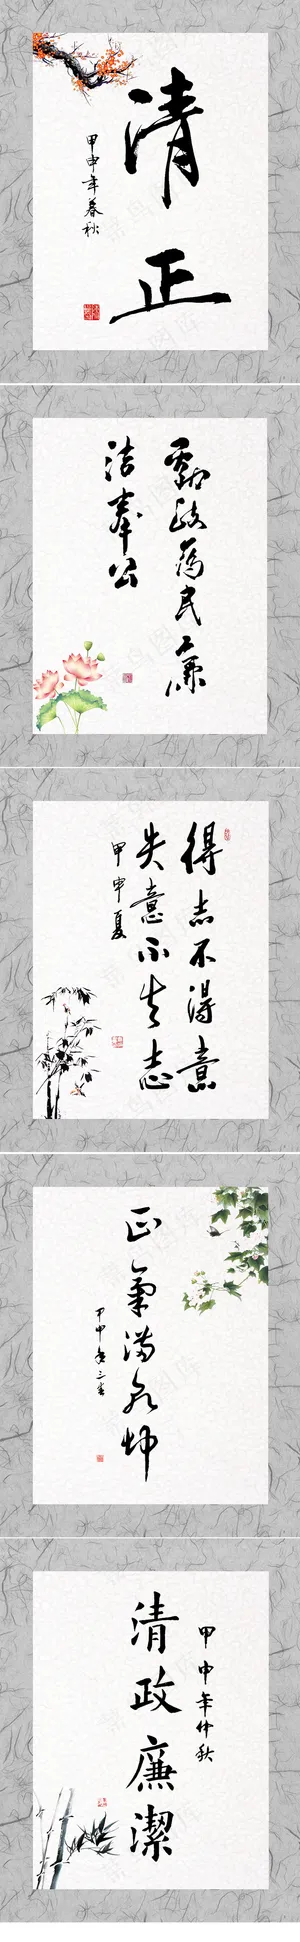 清正
甲申年春秋
勤政為民廉
洁奉公
得志不得意
失意不失志
甲申夏
正氣满乾坤
甲申年三
甲申年仲秋
清政廉潔